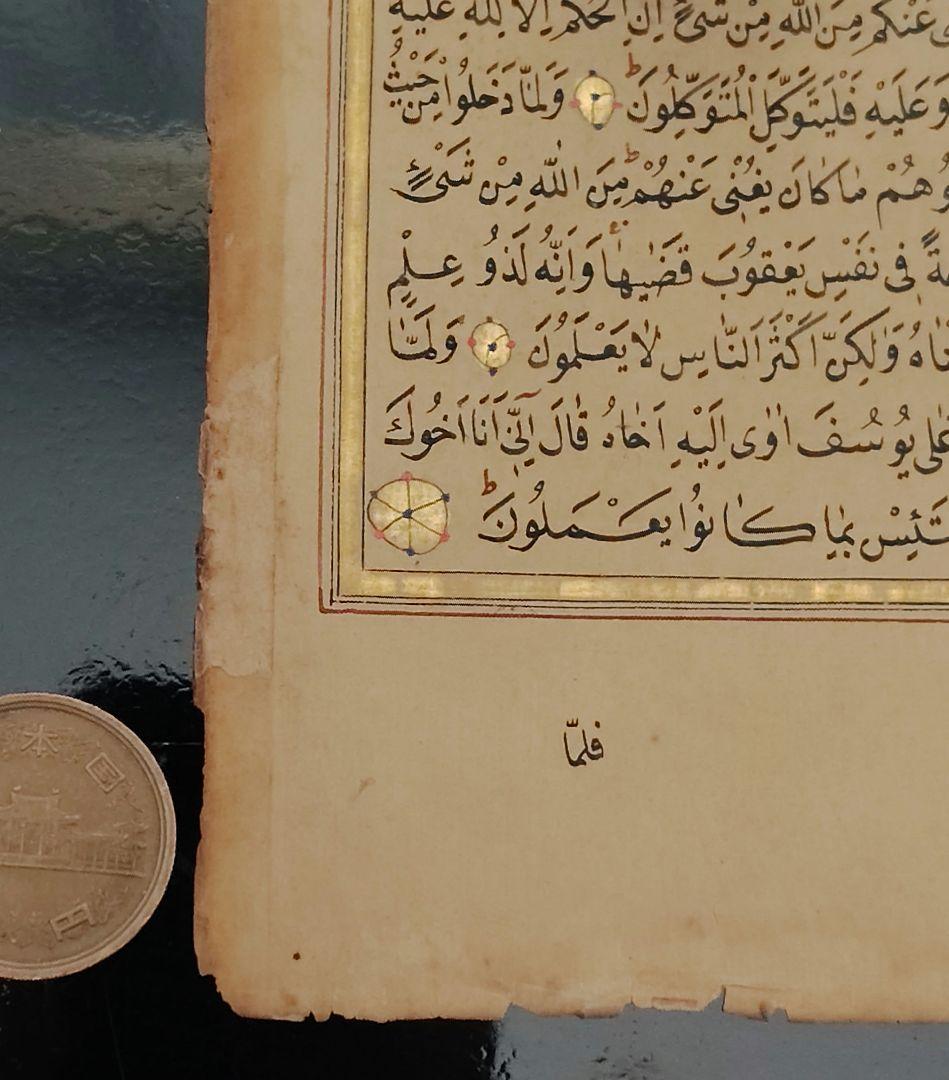 عَنْكُمْ مِنَ اللّٰهِ مِنْ شَىْءٍ اِنِ الْحُكْمُ اِلَّا لِلّٰهِ عَلَيْهِ
وَعَلَيْهِ فَلْيَتَوَكَّلِ الْمُتَوَكِّلُونَ ط وَلَمَّا دَخَلُوا مِنْ حَيْثُ
هُمْ مَا كَانَ يُغْنٖى عَنْهُمْ ط مِنَ اللّٰهِ مِنْ شَىْءٍ
فٖى نَفْسِ يَعْقُوبَ قَضٰيهَا وَاِنَّهُ لَذُو عِلْمٍ
وَلٰكِنَّ اَكْثَرَ النَّاسِ لَا يَعْلَمُونَ وَلَمَّا
عَلٰى يُوسُفَ اٰوٰى اِلَيْهِ اَخَاهُ قَالَ اِنّٖى اَنَا اَخُوكَ
تَبْتَئِسْ بِمَا كَانُوا يَعْمَلُونَ ط
فلمّا
日本国
十円